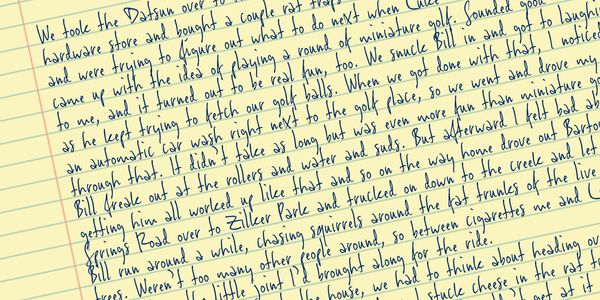 We took the Datsun over to
hardware store and bought a couple rat traps
and were trying to figure out what to do next when Luke
came up with the idea of playing a round of miniature golf. Sounded good
to me, and it turned out to be real fun, too. We snuck Bill in and got to laughing
as he kept trying to fetch our golf balls. When we got done with that, I noticed
an automatic car wash right next to the golf place, so we went and drove my
through that. It didn't take as long but was even more fun than miniature go
Bill freak out at the rollers and water and suds. But afterward I felt bad ab
getting him all worked up like that and so on the way home drove out Barto
Springs Road over to Zilker Park and trucked on down to the creek and let
Bill run around a while, chasing squirrels around the fat trunks of the live
trees. Weren't too many other people around, so between cigarettes me and
little joint I'd brought along for the ride.
the house, we had to think about heading ov
stuck cheese in the rat t
got at it